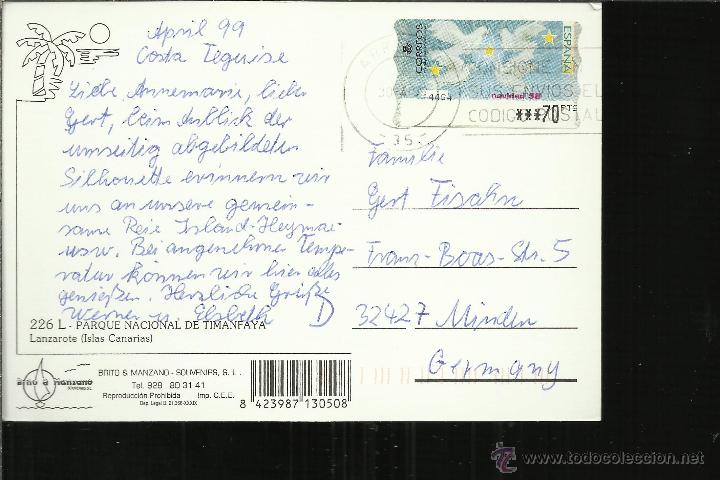 April 99
Costa Teguise
Liebe Annemarie, lieber
Gert, beim Anblick der
umseitig abgebildeten
Silhouette erinnern wir
uns an unsere gemein-
same Reise Island-Heymaei
usw. Bei angenehmer Tempe-
ratur können wir hier alles
genießen. Herzliche Grüße
Werner u. Elsbeth
226 L - PARQUE NACIONAL DE TIMANFAYA
Lanzarote (Islas Canarias)
Brito & Manzano
BRITO & MANZANO - SOUVENIRS, S. L.
Tel. 928 80 31 41
Reproducción Prohibida Imp. C.E.E.
8 423987 130508
CORREOS
ESPAÑA
navidad 98
4404
***70 PTS
CODIGO POSTAL
Familie
Gert Fisahn
Franz-Boas-Str. 5
32427 Minden
Germany
todocoleccion.net